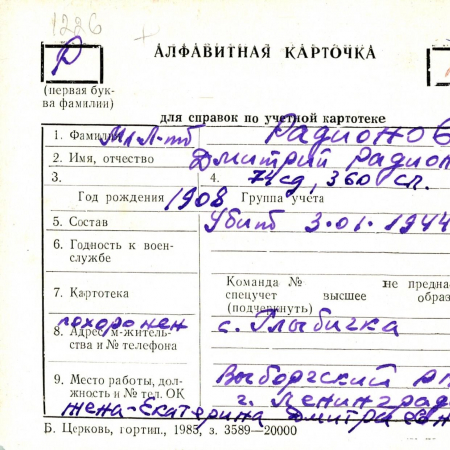 1226
Р
АЛФАВИТНАЯ КАРТОЧКА
(первая бук-
ва фамилии)
для справок по учетной картотеке
1. Фамилия Мл л-тб Радионов
2. Имя, отчество Дмитрий Радион
3. 4. 74 сд, 360 сп.
Год рождения 1908 Группа учета
5. Состав Убит 3.01.1944
6. Годность к воен-
службе
Команда № не предна
7. Картотека спецучет высшее образ
(подчеркнуть)
похоронен с. Глыбичка
8. Адрес м-житель-
ства и № телефона
Выборгский р
9. Место работы, дол-
жность и № тел. ОК г. Ленинград
жена - Екатерина Дмитриевн
Б. Церковь, гортип., 1985, з. 3589—20000